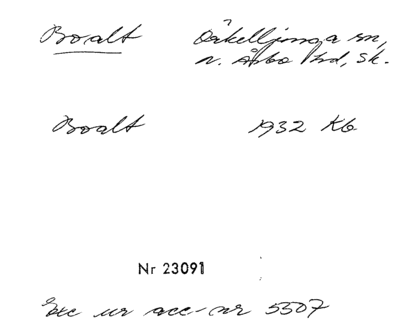 Boalt Örkelljunga sn,
n. Åsbo hd, Sk.
Boalt 1932 Kb
Nr 23091
Exc ur acc-nr 5507